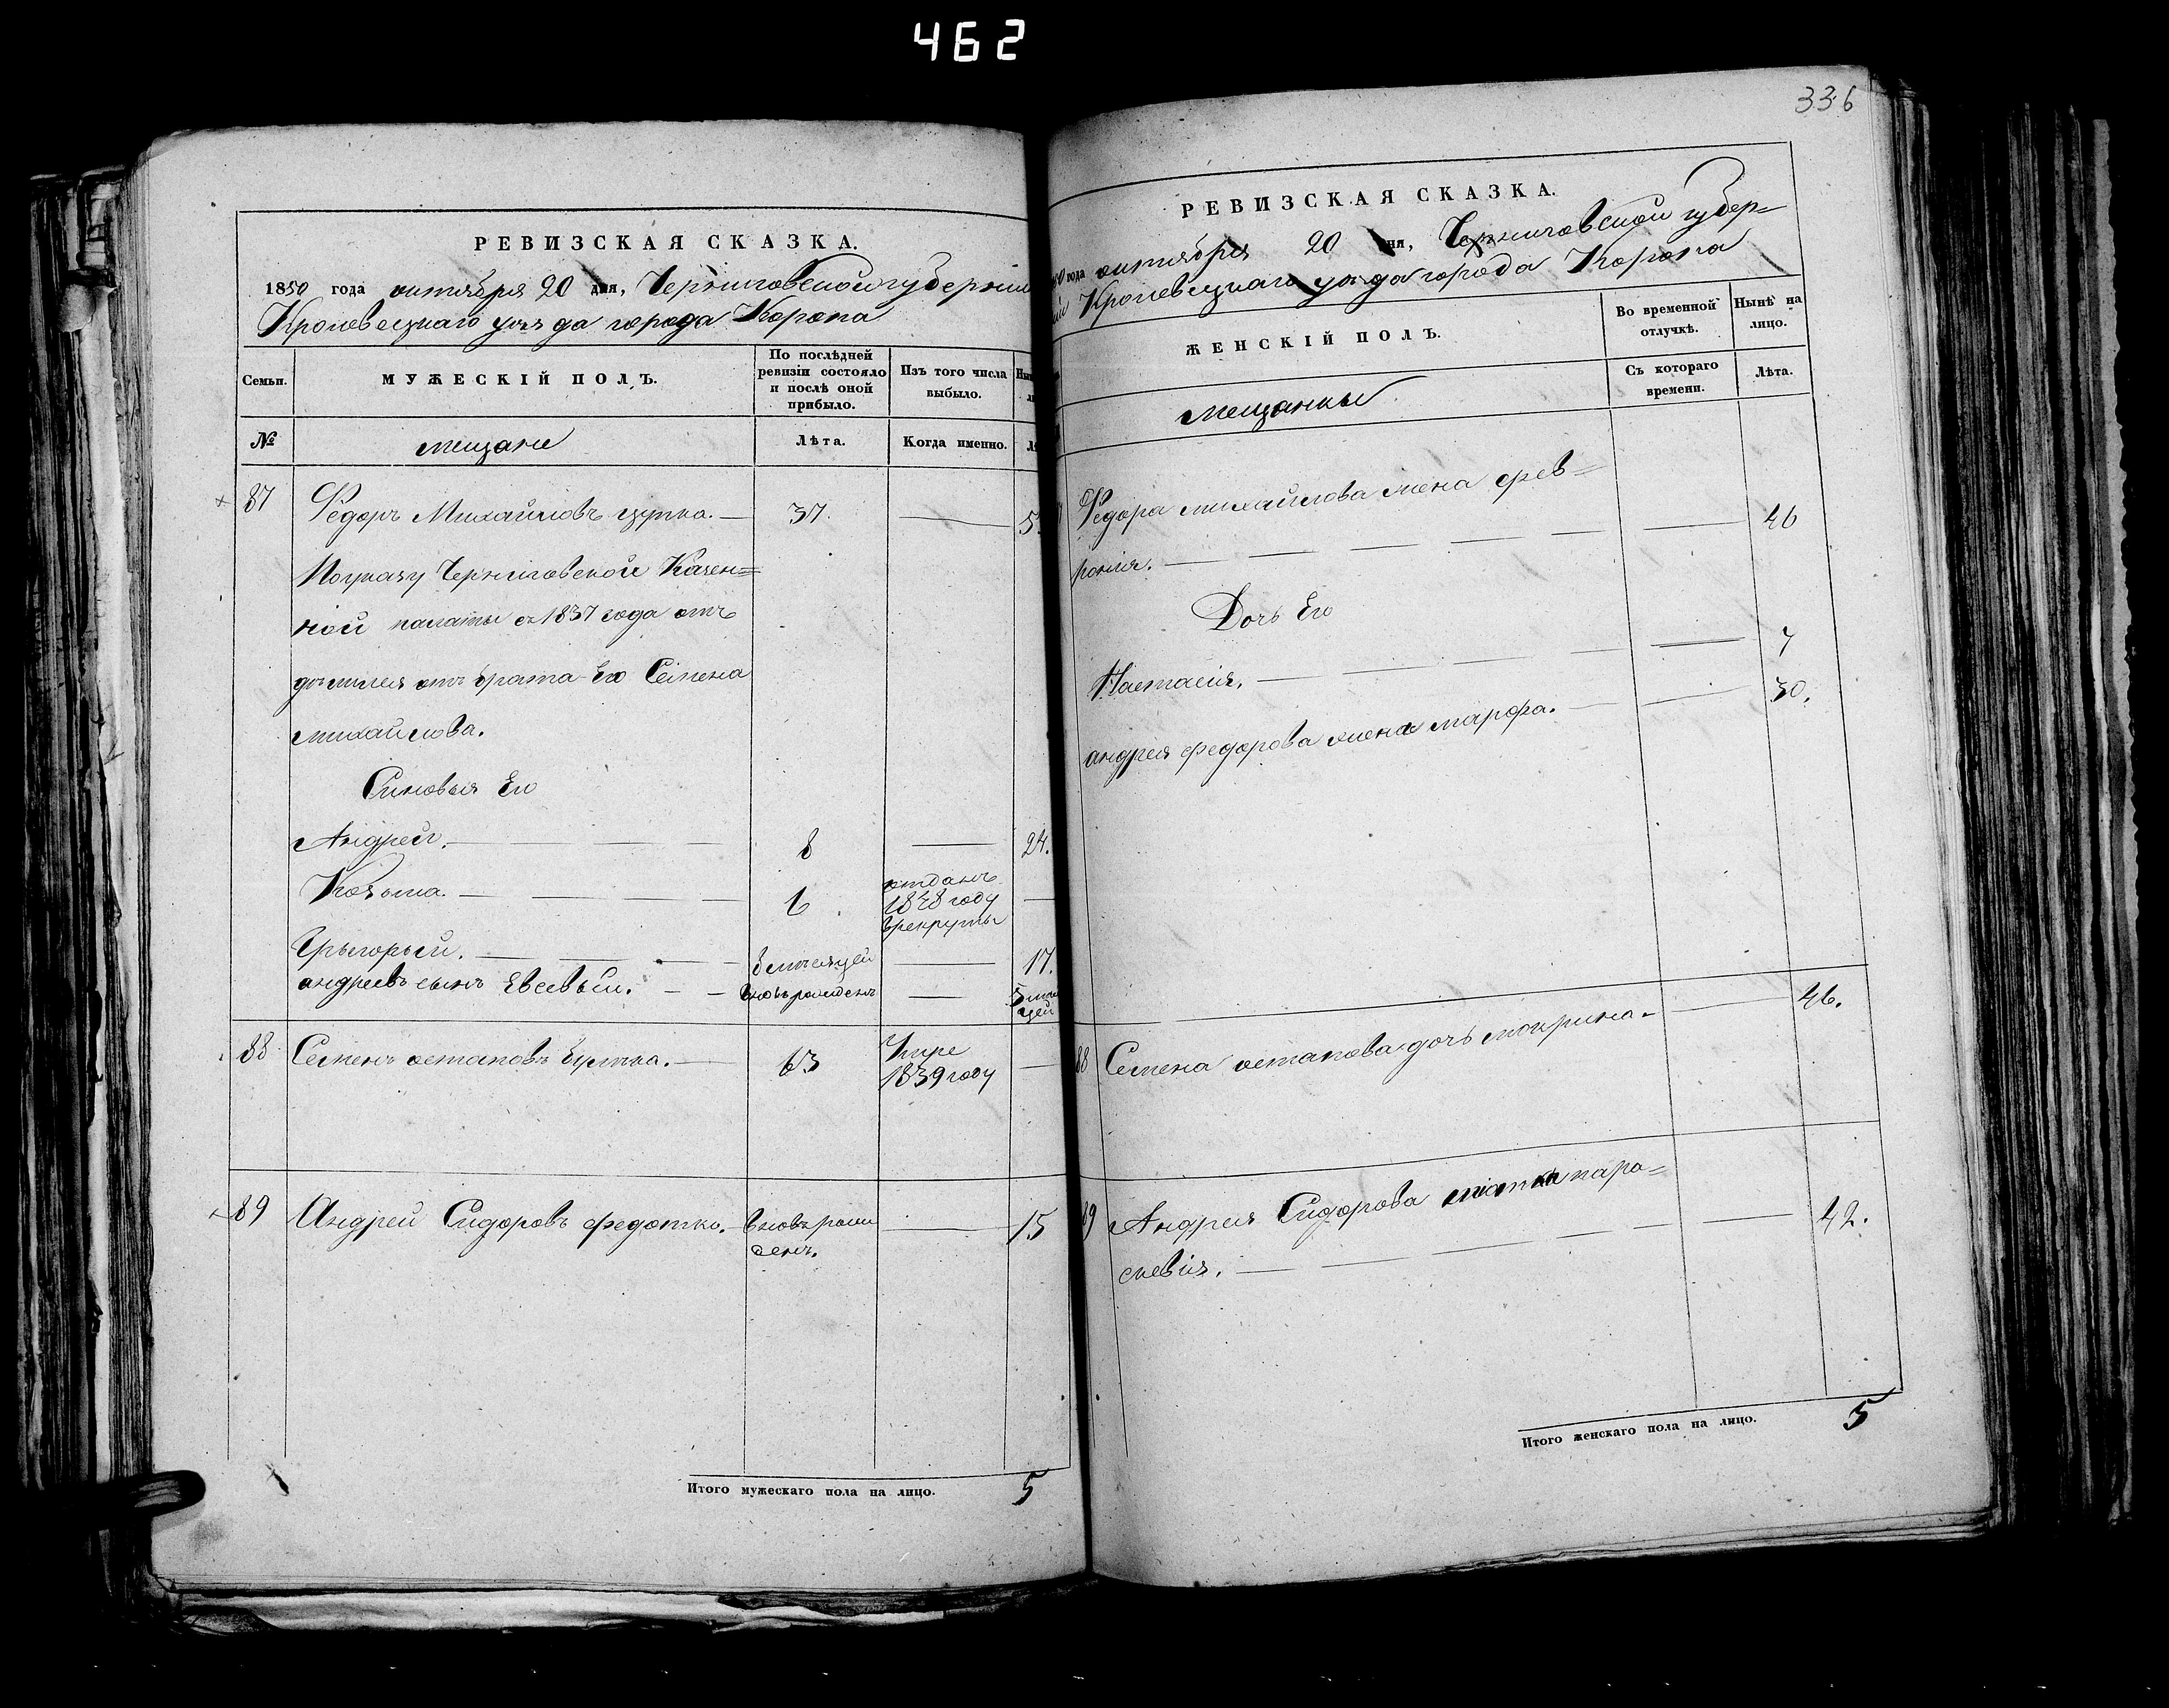 462
РЕВИЗСКАЯ СКАЗКА.
1850 года октября 20 дня, Черниговской губернии
Кролевецкаго уѣзда города Коропа
Семьи.
МУЖЕСКІЙ ПОЛЪ.
По послѣдней ревизіи состояло и послѣ оной прибыло.
Изъ того числа выбыло.
№
мещане
Лѣта.
Когда именно.
87 Федоръ Михайловъ 37.
Поуказу Черниговской Казен=
ной палаты съ 1837 года отъ
дѣлился отъ брата Его Семена
михайлова.
Синовья Его
Андрей. 8 24.
Козьма. 6 отданъ
1848 году
врекруты
Грыгорый. 8 мѣсяцей 17.
андреевъ сынъ Евсевый. вновьрожденъ 5
цей
88 Семенъ остаповъ 63 Умре
1839 году
89 Андрей Сидоровъ федотко. вновьрож 15
денъ.
Итого мужескаго пола на лицо. 5
336
РЕВИЗСКАЯ СКАЗКА.
года октября 20 дня, Черниговской губер=
Кролевецкаго уѣзда города Коропа
ЖЕНСКІЙ ПОЛЪ.
Во временной отлучкѣ.
Нынѣ на лицо.
Съ котораго времени.
Лѣта.
мещанки
Федора михайлова жена фев=
ронія. 46
Дочь Его
Настасія. 7
андрея федорова жена марфа. 30.
88 Семена остапова дочь мокрина. 46.
89 Андрея Сидорова матка пара=
скевія. 42.
Итого женскаго пола на лицо. 5